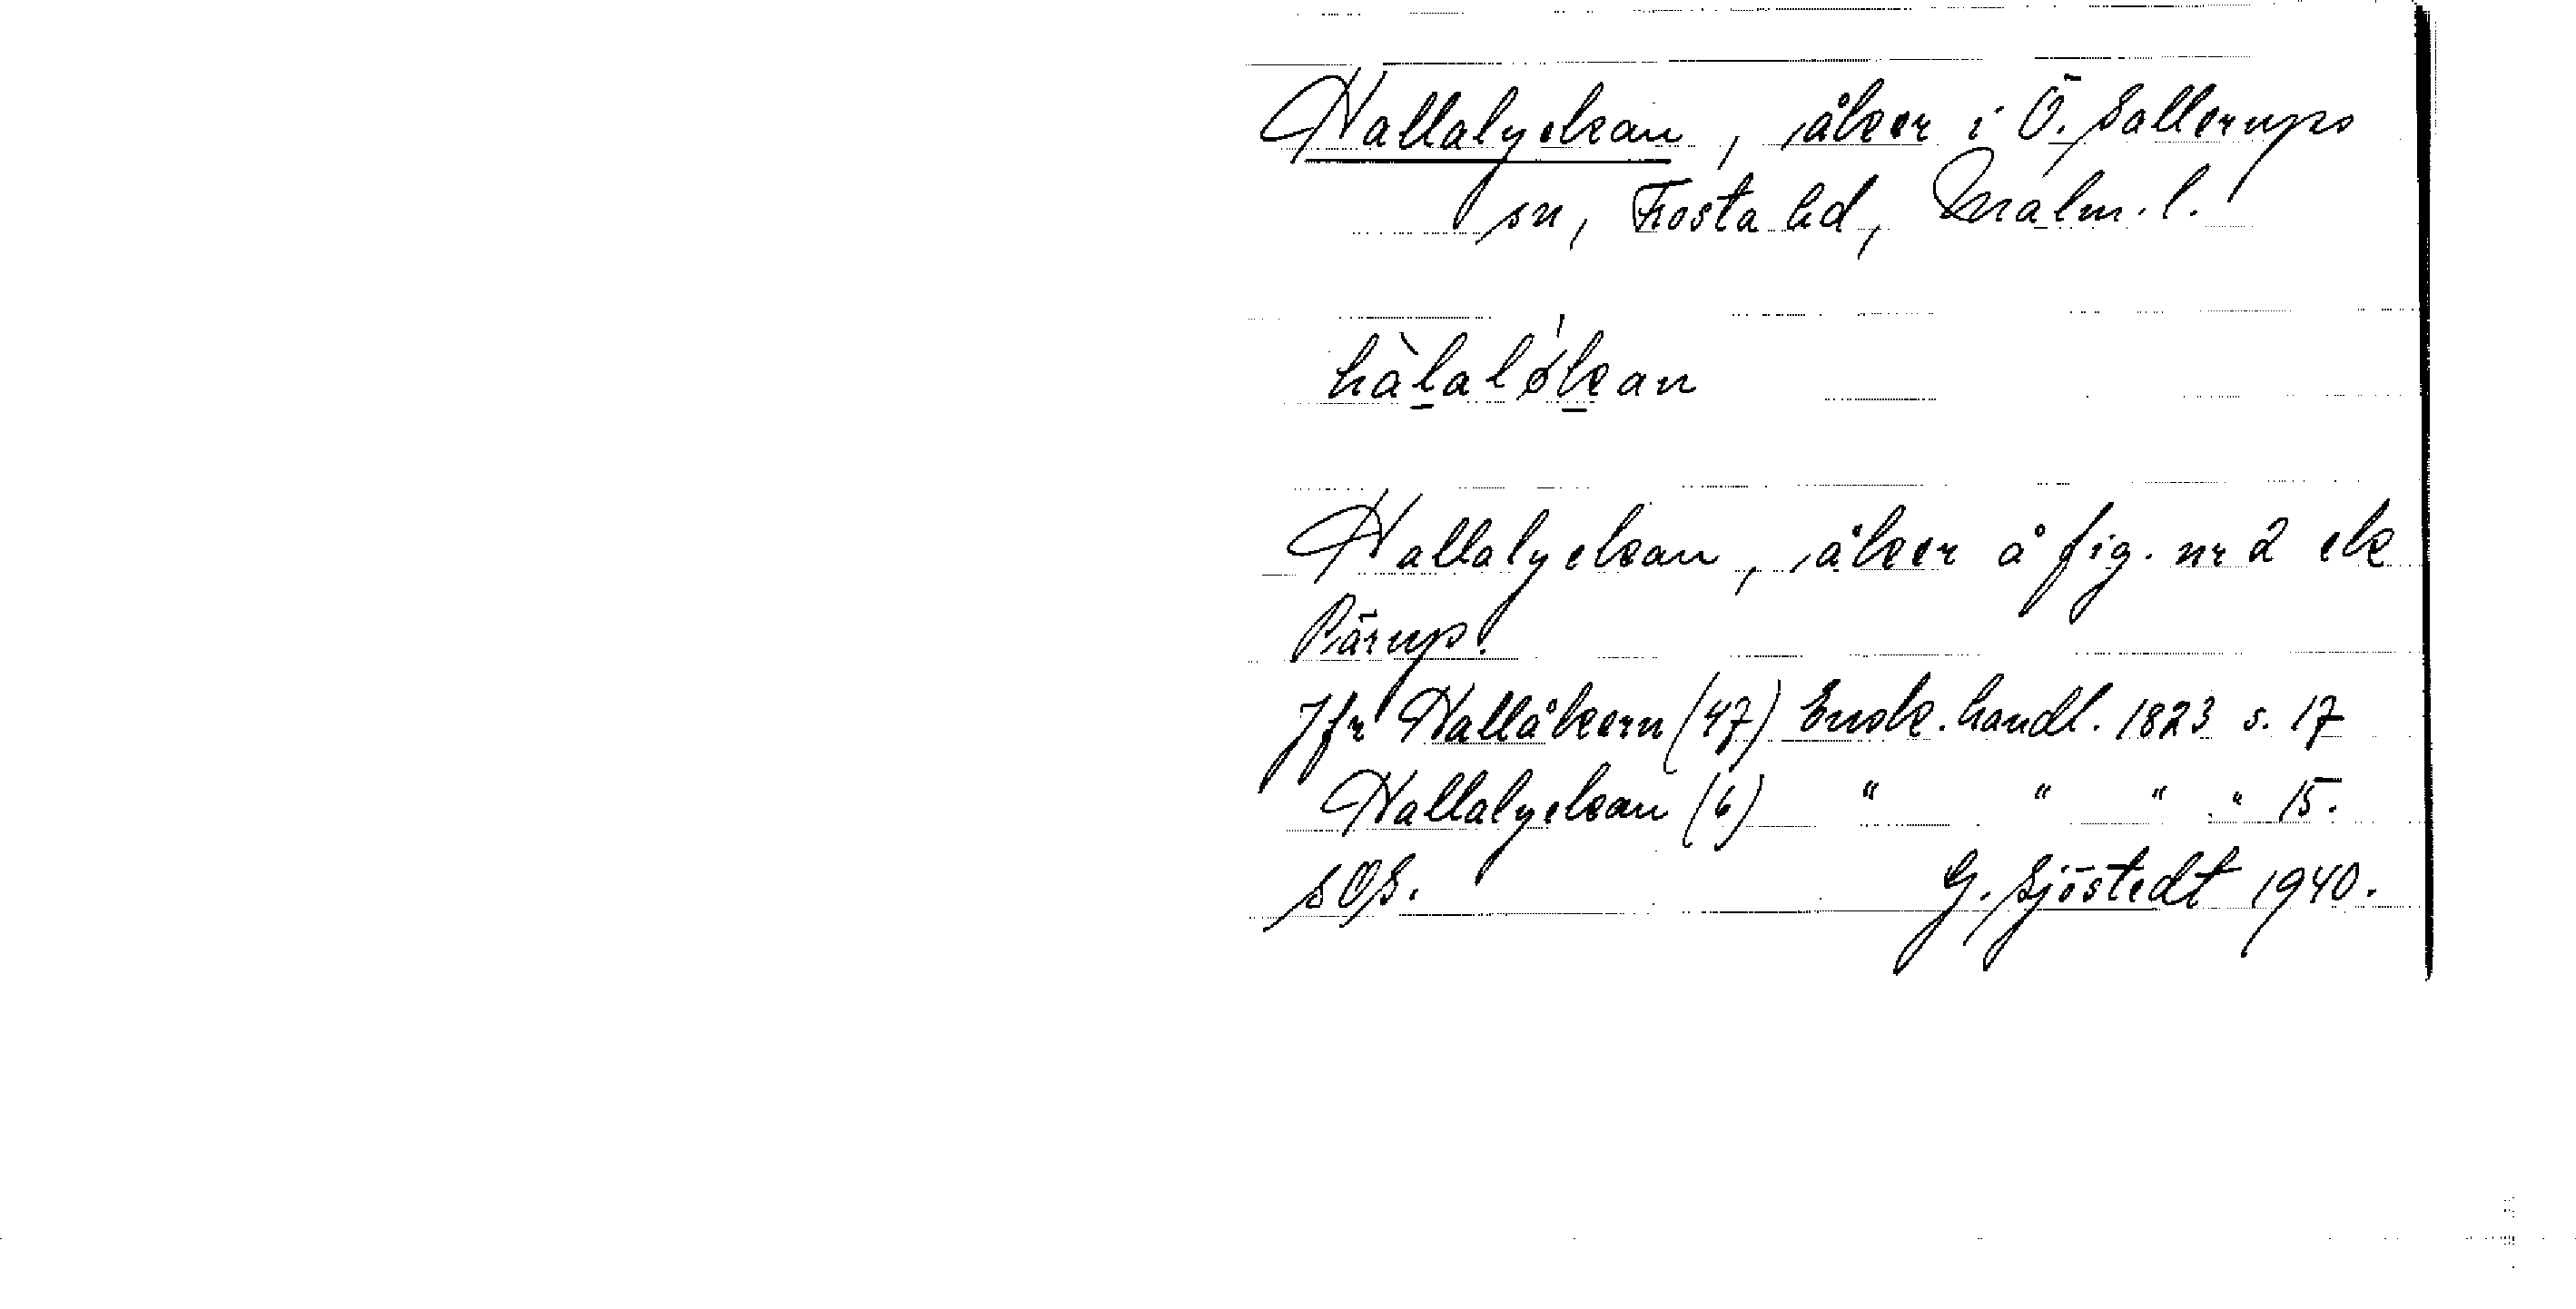 Hallalyckan, åker i Ö. Sallerups
sn, Frosta hd, Malm. l.
hàl̠alǿk̠an
Hallalyckan, åker å fig. nr 2 ck
Pärup.
Jfr Hallåkern (47) Ensk. handl. 1823 s. 17
Hallalyckan (6) " " " " 15.
SOS. G. Sjöstedt 1940.